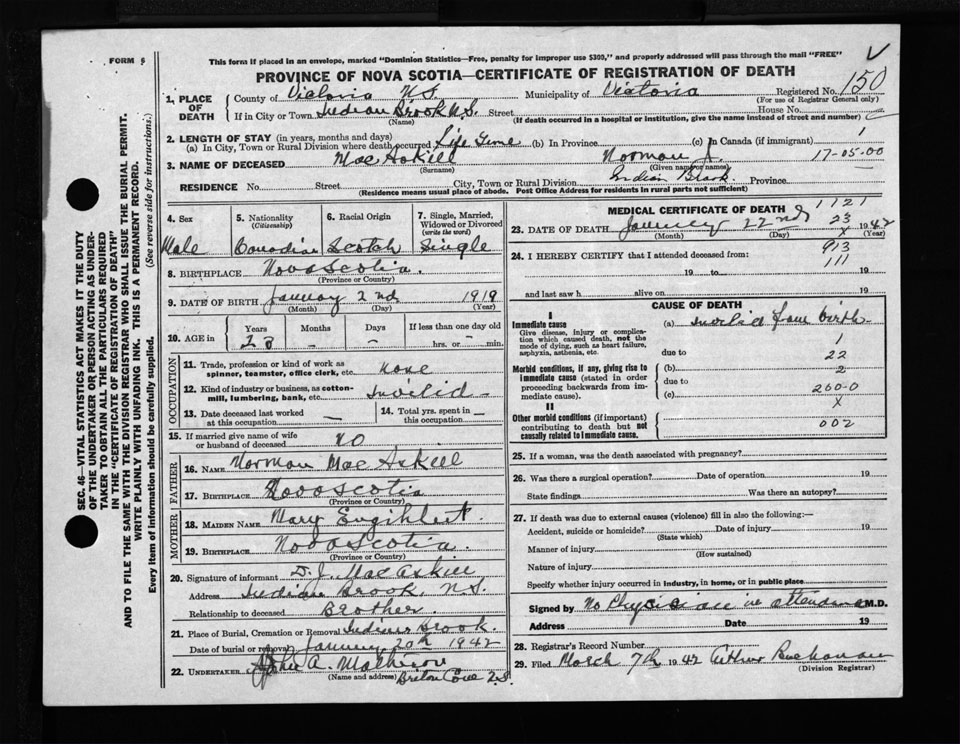 FORM 5
This form if placed in an envelope, marked "Dominion Statistics—Free, penalty for improper use $300," and properly addressed will pass through the mail "FREE"
PROVINCE OF NOVA SCOTIA—CERTIFICATE OF REGISTRATION OF DEATH
1. PLACE OF DEATH
County of Victoria N.S. Municipality of Victoria Registered No. 150
(For use of Registrar General only)
If in City or Town Indian Brook N.S. Street House No.
(Name) (If death occurred in a hospital or institution, give the name instead of street and number)
2. LENGTH OF STAY (in years, months and days)
(a) In City, Town or Rural Division where death occurred Life Time (b) In Province (c) In Canada (if immigrant) 1
3. NAME OF DECEASED Mac Askill Norman J. 17-05-00
(Surname) (Given name or names)
RESIDENCE No. Street City, Town or Rural Division Indian Brook Province
(Residence means usual place of abode. Post Office Address for residents in rural parts not sufficient)
4. Sex Male
5. Nationality (Citizenship) Canadian
6. Racial Origin Scotch
7. Single, Married, Widowed or Divorced (write the word) Single
8. BIRTHPLACE Nova Scotia
(Province or Country)
9. DATE OF BIRTH January 2nd 1919
(Month) (Day) (Year)
10. AGE in Years Months Days If less than one day old
23 – – hrs. or – min.
OCCUPATION
11. Trade, profession or kind of work as spinner, teamster, office clerk, etc. none
12. Kind of industry or business, as cotton-mill, lumbering, bank, etc. Invilid
13. Date deceased last worked at this occupation —
14. Total yrs. spent in this occupation –
15. If married give name of wife or husband of deceased NO
FATHER
16. NAME Norman Mac Askill
17. BIRTHPLACE Nova Scotia
(Province or Country)
MOTHER
18. MAIDEN NAME Mary
19. BIRTHPLACE Nova Scotia
(Province or Country)
20. Signature of informant D. J. Mac Askill
Address Indian Brook, N.S.
Relationship to deceased Brother
21. Place of Burial, Cremation or Removal Indian Brook.
Date of burial or removal January 20th 1942
22. UNDERTAKER John A. Mathison
(Name and address) Breton Cove N.S.
MEDICAL CERTIFICATE OF DEATH 1121
23. DATE OF DEATH January 22nd 23 1942
(Month) (Day) X (Year)
24. I HEREBY CERTIFY that I attended deceased from: 913
19 to 111 19
and last saw h alive on 19
CAUSE OF DEATH
I
Immediate cause
Give disease, injury or complication which caused death, not the mode of dying, such as heart failure, asphyxia, asthenia, etc.
(a) invilid from birth
1
due to 22
Morbid conditions, if any, giving rise to immediate cause (stated in order proceeding backwards from immediate cause).
(b) 2
due to
(c) 200-0
X
II
Other morbid conditions (if important) contributing to death but not causally related to immediate cause.
002
25. If a woman, was the death associated with pregnancy?
26. Was there a surgical operation? Date of operation 19
State findings Was there an autopsy?
27. If death was due to external causes (violence) fill in also the following:—
Accident, suicide or homicide? Date of injury 19
(State which)
Manner of injury
(How sustained)
Nature of injury
Specify whether injury occurred in industry, in home, or in public place
Signed by No Physician in attendance M.D.
Address Date 19
28. Registrar's Record Number
29. Filed March 7th 1942 Arthur Buchanan
(Division Registrar)
SEC. 46—VITAL STATISTICS ACT MAKES IT THE DUTY
OF THE UNDERTAKER OR PERSON ACTING AS UNDER-
TAKER TO OBTAIN ALL THE PARTICULARS REQUIRED
IN THE "CERTIFICATE OF REGISTRATION OF DEATH"
AND TO FILE THE SAME WITH THE DIVISION REGISTRAR WHO SHALL ISSUE THE BURIAL PERMIT.
WRITE PLAINLY WITH UNFADING INK. THIS IS A PERMANENT RECORD.
Every item of information should be carefully supplied. (See reverse side for instructions.)